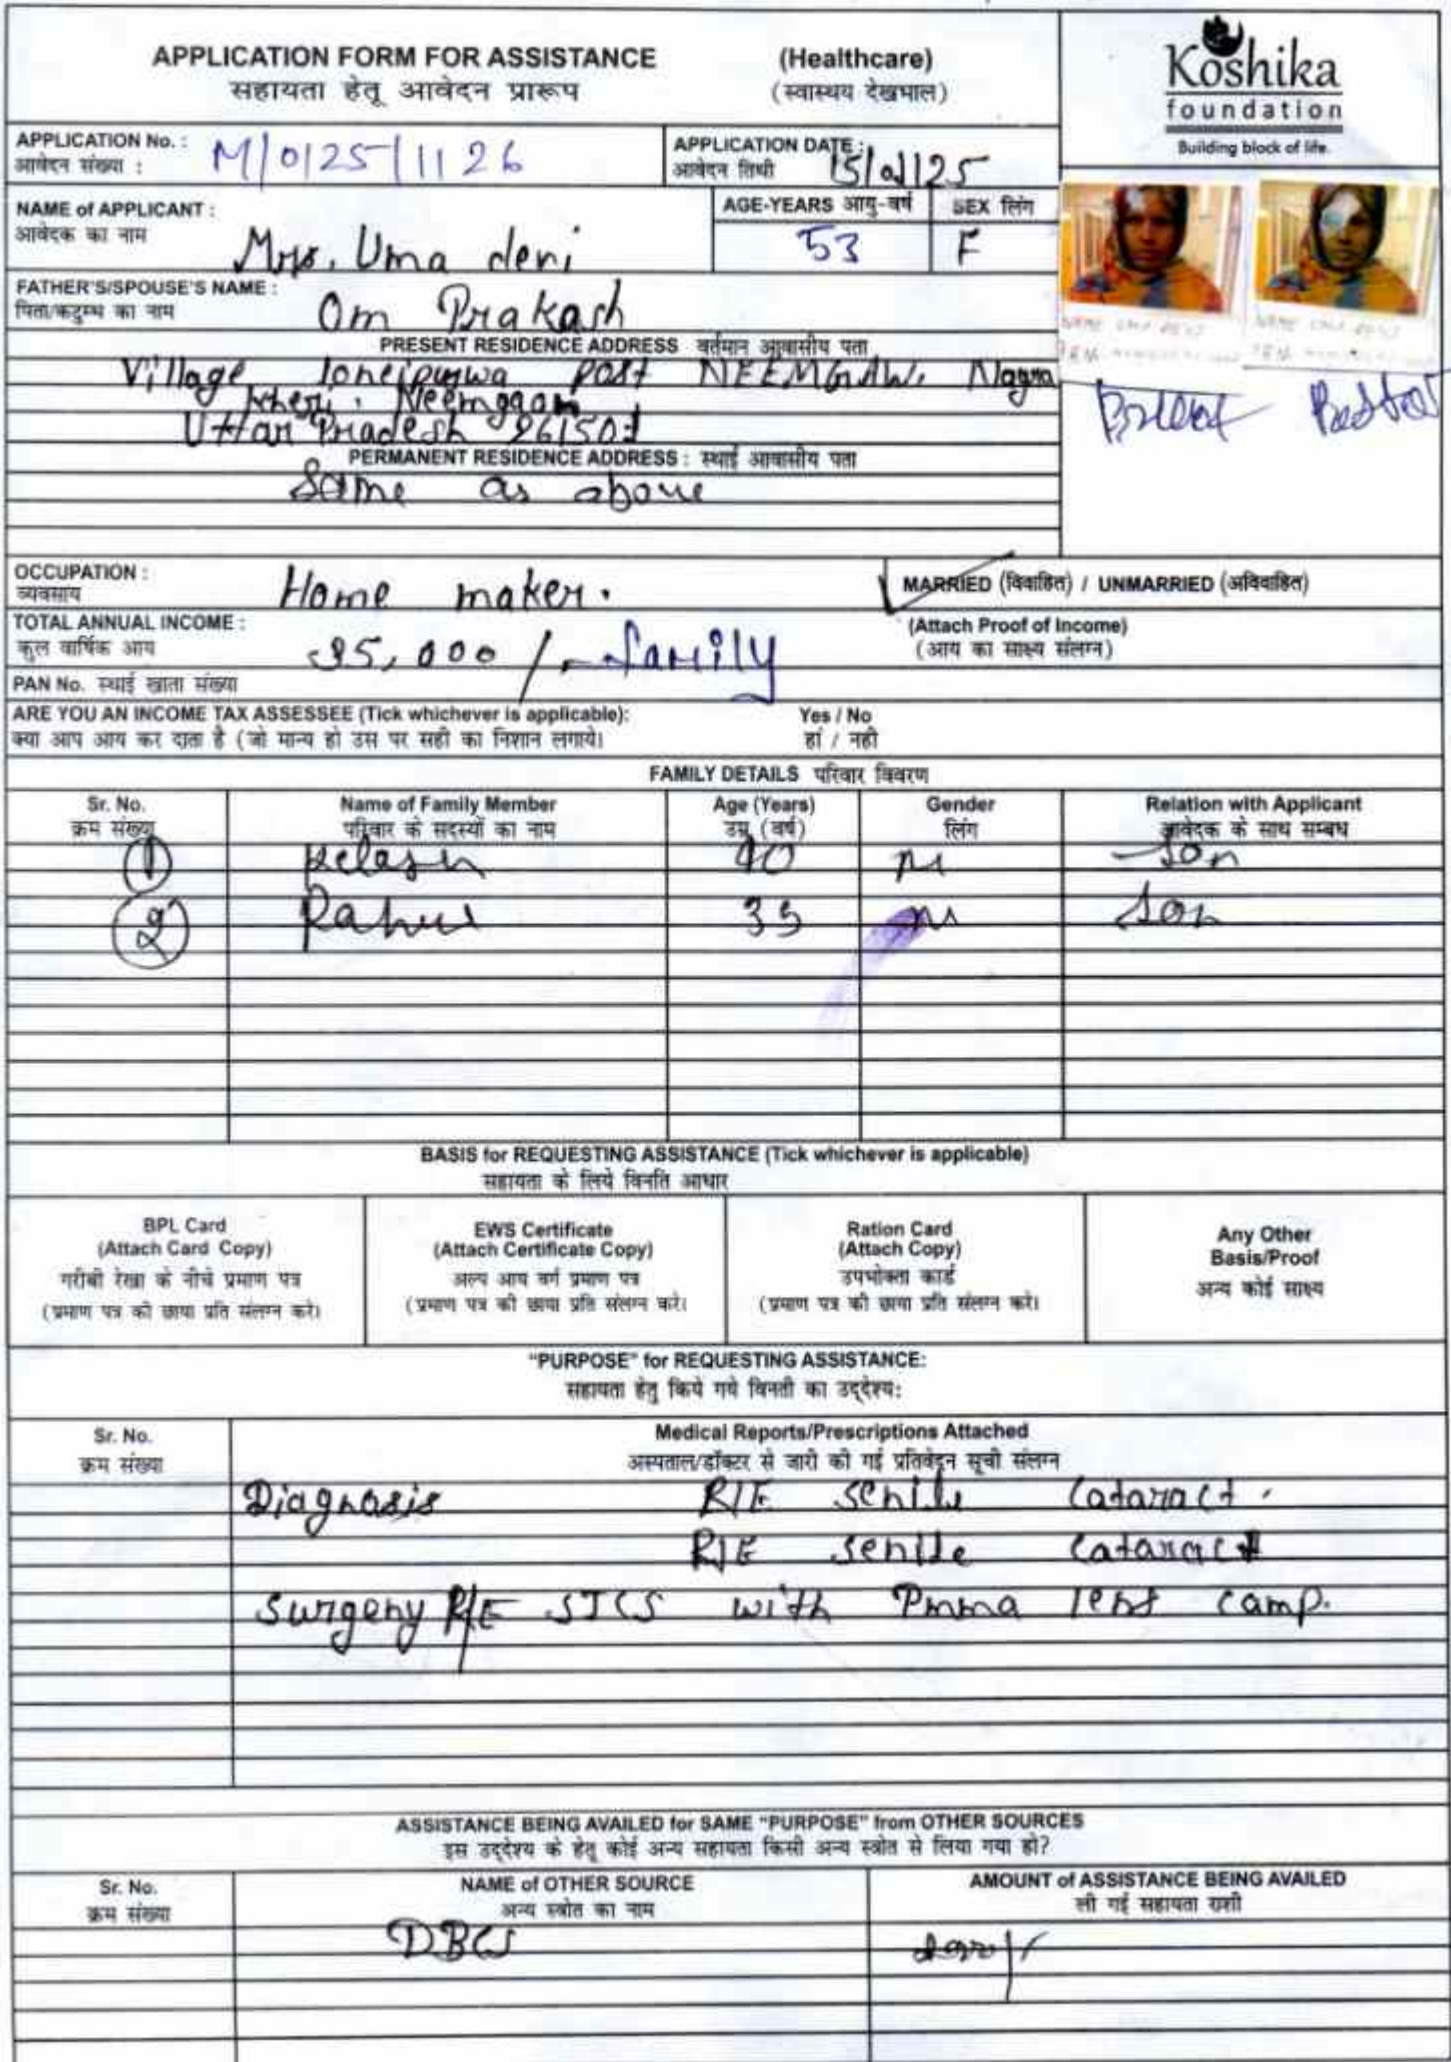 APPLICATION FORM FOR ASSISTANCE (Healthcare)
सहायता हेतू आवेदन प्रारूप (स्वास्थय देखभाल)
Koshika
foundation
Building block of life.
APPLICATION No. : M/0125/1126
आवेदन संख्या :
APPLICATION DATE : 15/01/25
आवेदन तिथी
NAME of APPLICANT : Mrs. Uma devi
आवेदक का नाम
AGE-YEARS आयु-वर्ष 53
SEX लिंग F
FATHER'S/SPOUSE'S NAME : Om Prakash
पिता/कटुम्ब का नाम
PRESENT RESIDENCE ADDRESS वर्तमान आवासीय पता
Village Post NEEMGAW. Nagra
kheri. Neemgaon
Uttar Pradesh 261501
PERMANENT RESIDENCE ADDRESS : स्थाई आवासीय पता
Same as above
OCCUPATION : Home maker.
व्यवसाय
MARRIED (विवाहित) / UNMARRIED (अविवाहित)
TOTAL ANNUAL INCOME : 35,000/- family
कुल वार्षिक आय
(Attach Proof of Income)
(आय का साक्ष्य संलग्न)
PAN No. स्थाई खाता संख्या
ARE YOU AN INCOME TAX ASSESSEE (Tick whichever is applicable): Yes / No
क्या आप आय कर दाता है (जो मान्य हो उस पर सही का निशान लगाये। हां / नही
FAMILY DETAILS परिवार विवरण
Sr. No. Name of Family Member Age (Years) Gender Relation with Applicant
क्रम संख्या परिवार के सदस्यों का नाम उम्र (वर्ष) लिंग आवेदक के साथ सम्बध
1 Kelash 40 M Son
2 Rahul 35 M Son
BASIS for REQUESTING ASSISTANCE (Tick whichever is applicable)
सहायता के लिये विनति आधार
BPL Card
(Attach Card Copy)
गरीबी रेखा के नीचे प्रमाण पत्र
(प्रमाण पत्र की छाया प्रति संलग्न करे।
EWS Certificate
(Attach Certificate Copy)
अल्प आय वर्ग प्रमाण पत्र
(प्रमाण पत्र की छाया प्रति संलग्न करे।
Ration Card
(Attach Copy)
उपभोक्ता कार्ड
(प्रमाण पत्र की छाया प्रति संलग्न करे।
Any Other
Basis/Proof
अन्य कोई साक्ष्य
"PURPOSE" for REQUESTING ASSISTANCE:
सहायता हेतु किये गये विनती का उद्देश्य:
Sr. No. Medical Reports/Prescriptions Attached
क्रम संख्या अस्पताल/डॉक्टर से जारी की गई प्रतिवेदन सूची संलग्न
Diagnosis R/E senile Cataract.
R/E senile Cataract
Surgery R/E SICS with Pmma lens camp.
ASSISTANCE BEING AVAILED for SAME "PURPOSE" from OTHER SOURCES
इस उद्देश्य के हेतु कोई अन्य सहायता किसी अन्य स्त्रोत से लिया गया हो?
Sr. No. NAME of OTHER SOURCE AMOUNT of ASSISTANCE BEING AVAILED
क्रम संख्या अन्य स्त्रोत का नाम ली गई सहायता राशी
DBCS